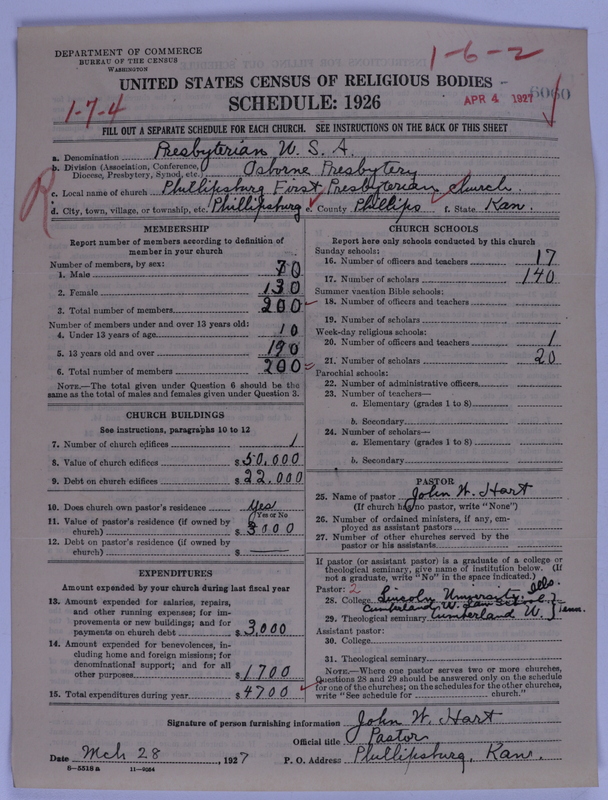 DEPARTMENT OF COMMERCE
BUREAU OF THE CENSUS
WASHINGTON
1-6-2
UNITED STATES CENSUS OF RELIGIOUS BODIES
SCHEDULE: 1926
1-7-4
APR 4 1927
6060
FILL OUT A SEPARATE SCHEDULE FOR EACH CHURCH. SEE INSTRUCTIONS ON THE BACK OF THIS SHEET
a. Denomination Presbyterian U. S. A.
b. Division (Association, Conference, Diocese, Presbytery, Synod, etc.) Osborne Presbytery
R
c. Local name of church Phillipsburg First Presbyterian Church.
d. City, town, village, or township, etc. Phillipsburg e. County Phillips f. State Kan.
MEMBERSHIP
Report number of members according to definition of
member in your church
Number of members, by sex:
1. Male 70
2. Female 130
3. Total number of members 200
Number of members under and over 13 years old:
4. Under 13 years of age 10
5. 13 years old and over 190
6. Total number of members 200
NOTE.—The total given under Question 6 should be the
same as the total of males and females given under Question 3.
CHURCH BUILDINGS
See instructions, paragraphs 10 to 12
7. Number of church edifices 1
8. Value of church edifices $ 50,000
9. Debt on church edifices $ 22,000
10. Does church own pastor's residence Yes
(Yes or No)
11. Value of pastor's residence (if owned by
church) $ 3000
12. Debt on pastor's residence (if owned by
church) $ —
EXPENDITURES
Amount expended by your church during last fiscal year
13. Amount expended for salaries, repairs,
and other running expenses; for im-
provements or new buildings; and for
payments on church debt $ 3,000
14. Amount expended for benevolences, in-
cluding home and foreign missions; for
denominational support; and for all
other purposes $ 1700
15. Total expenditures during year $ 4700
CHURCH SCHOOLS
Report here only schools conducted by this church
Sunday schools:
16. Number of officers and teachers 17
17. Number of scholars 140
Summer vacation Bible schools:
18. Number of officers and teachers
19. Number of scholars
Week-day religious schools:
20. Number of officers and teachers 1
21. Number of scholars 20
Parochial schools:
22. Number of administrative officers
23. Number of teachers—
a. Elementary (grades 1 to 8)
b. Secondary
24. Number of scholars—
a. Elementary (grades 1 to 8)
b. Secondary
PASTOR
25. Name of pastor John W. Hart
(If church has no pastor, write "None")
26. Number of ordained ministers, if any, em-
ployed as assistant pastors
27. Number of other churches served by the
pastor or his assistants
If pastor (or assistant pastor) is a graduate of a college or
theological seminary, give name of institution below. (If
not a graduate, write "No" in the space indicated.)
Pastor: 2
28. College Lincoln University. Ills.
Cumberland U. Law School
29. Theological seminary Cumberland U. } Tenn.
Assistant pastor:
30. College
31. Theological seminary
NOTE.—Where one pastor serves two or more churches,
Questions 28 and 29 should be answered only on the schedule
for one of the churches; on the schedules for the other churches,
write "See schedule for church."
Signature of person furnishing information John W. Hart
Official title Pastor
Date Mch 28, 1927 P. O. Address Phillipsburg, Kan.
8—5518 a 11—9264